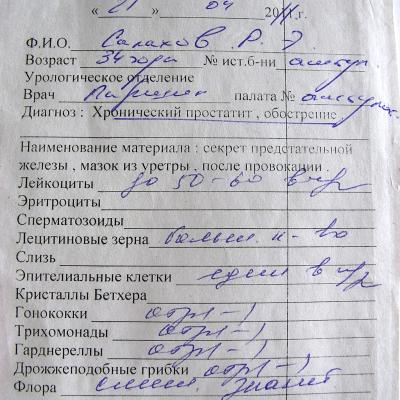 « 21 » 04 2011 г.
Ф.И.О. Салахов Р. Э.
Возраст 34 года № ист.б-ни амбул.
Урологическое отделение
Врач палата №
Диагноз : Хронический простатит , обострение
Наименование материала : секрет предстательной
железы , мазок из уретры , после провокации .
Лейкоциты до 50-60 в п/зр
Эритроциты
Сперматозоиды
Лецитиновые зерна больш. к-во
Слизь
Эпителиальные клетки един в п/зр
Кристаллы Бетхера
Гонококки отр(-)
Трихомонады отр(-)
Гарднереллы отр(-)
Дрожжеподобные грибки отр(-)
Флора смеш.